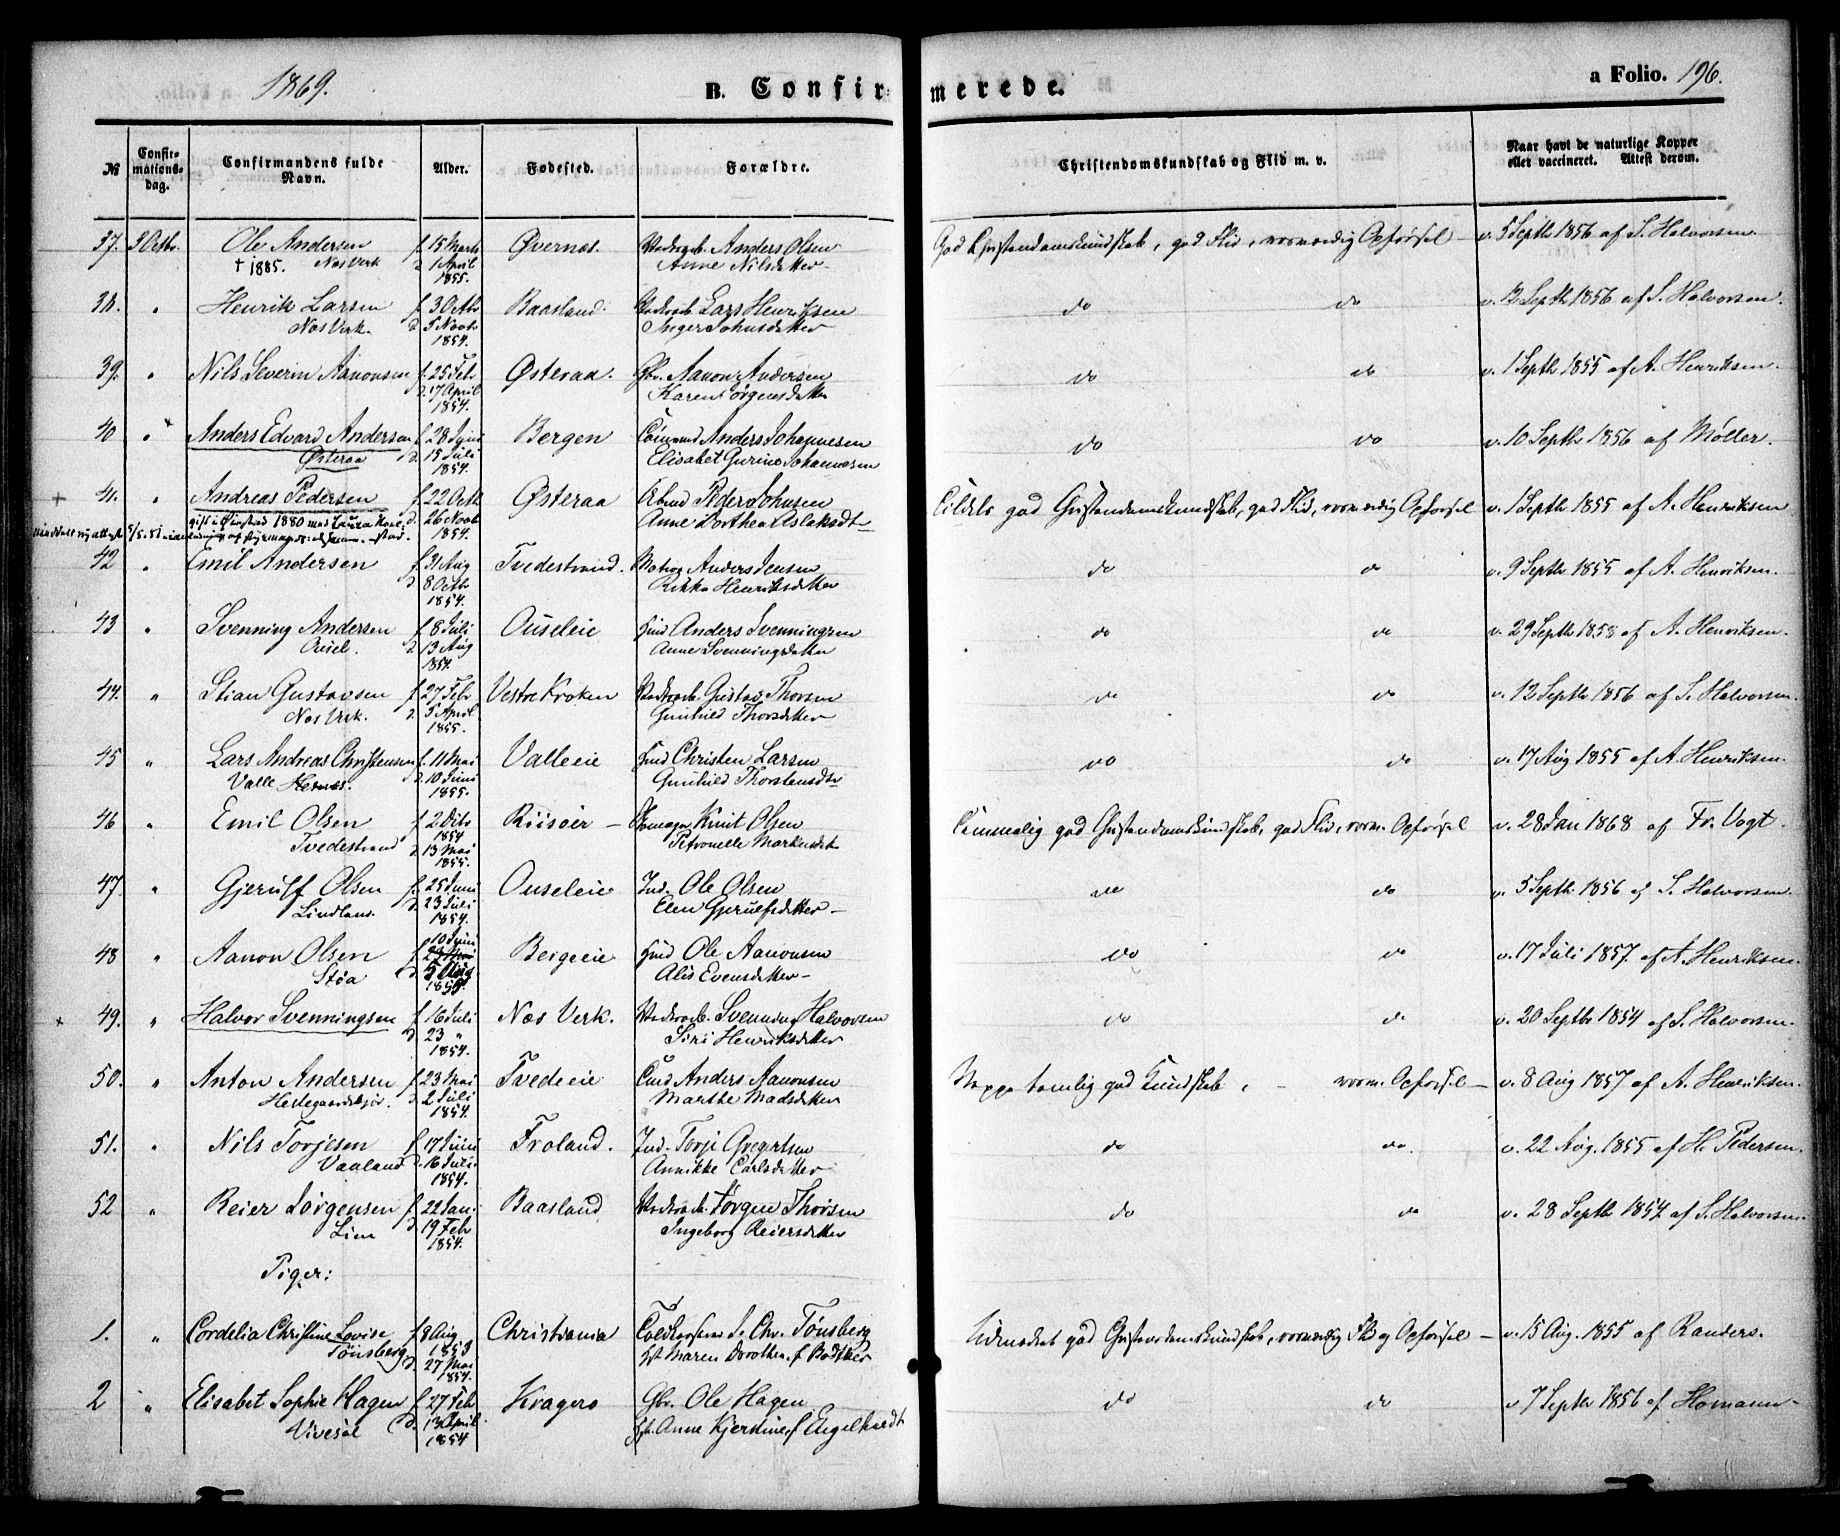 1869.
B. Confirmerede.
a Folio. 196.
No
Confirmations-dag.
Confirmandens fulde Navn.
Alder.
Fødested.
Forældre.
Christendomskundskab og Flid m. v.
Naar havt de naturlige Kopper eller vaccineret. Attest derom.
37. 3 Octbr. Ole Andersen f. 15 Marts Øvernes. Anders Olsen God Christendomskundskab, god Flid, vorværdig Opførsel - v. 5 Septb 1856 af S. Halvorsen
† 1885. Nes Verk d. 1 April Anne Nilsdatter-
1855.
38. " Henrik Larsen f. 3 Octb Baasland. Lars Henriksen do do v. 12 Septb 1856 af S. Halvorsen.
Nes Verk. d. 5 Novb Inger Johnsdatter
1854.
39. " Nils Severin Aanonsen f. 25 Feb Østeraa. Gbr. Aanon Andersen do do v. 1 Septb 1855 af A. Henriksen.
d. 17 April Karen Jørgensdatter
1854.
40 " Anders Edvard Andersen f. 28 Juni Bergen Anders Johannesen do do v. 10 Septb 1856 af Møller.
Østeraa d. 15 Juli Elisabet Gurine Johannesen
1854.
+ 41. " Andreas Pedersen f. 22 Octb Østeraa Peder Johnsen god Christendomskundskab, god Flid, vorværdig Opførsel v. 1 Septb 1855 af A. Henriksen
gift i 1880 med Laura d. 26 Novb Anne Dorthea Aslaksdt
1854.
42 " Emil Andersen f. 31 Aug Tvedestrand. Matros Anders Jensen do do v. 9 Septb 1855 af A. Henriksen.
d. 8 Octb Rikke Henriksdatter
1854.
43 " Svenning Andersen f. 8 Juli Ouseleie Anders Svenningsen do do v. 29 Septb 1855 af A. Henriksen.
Ousel. d. 13 Aug Anne Svenningsdatter
1854.
44. " Stian Gustavsen f. 27 Feb Vestre Kroken Gustav Thorsen do do v. 12 Septb 1856 af S. Halvorsen.
Nes Verk. d. 5 April Gunhild Thorsdatter
1855.
45 " Lars Andreas Christensen f. 11 Mai Valleeie Christen Larsen do do v. 17 Aug 1855 af A. Henriksen.
Valle Hernes. d. 10 Juni Gunhild Thorstensdtr
1855.
46 " Emil Olsen f. 2 Octb Riisøer - Knut Olsen Temmelig god Christendomskundskab, god Flid, vorv. Opførsel v. 28 Jan 1868 af Fr. Vogt.
1854
Tvedestrand d. 13 Mai Petronelle Markusdt
1855.
47 " Gjerulf Olsen f. 25 Juni Ouseleie Ind. Ole Olsen do do v. 5 Septb. 1856 af S. Halvorsen.
Lindland. d. 23 Juli Elen Gjerulfsdatter -
1854.
10 Juni
48 " Aanon Olsen Bergeeie Ole Aanonsen do do v. 17 Juli 1857. af A. Henriksen.
Støa d. 5 Aug Alis Evensdatter-
+ 49. " Halvor Svenningsen f. 16 Juli Nes Verk. Svenning Halvorsen do do v. 20 Septbr 1854 af S. Halvorsen.
d. 23 " Siri Henriksdatter
1854.
50. " Anton Andersen f. 23 Mai Tvedeeie Anders Aanonsen Neppe temlig god Kundskab, - vorv. Opførsel - v. 8 Aug 1857 af A. Henriksen.
d. 2 Juli Marthe Madsdatter
1854.
51. " Nils Torjesen f. 17 Juni Froland. Ind. Torje Gregertsen do do v. 22 Aug. 1855 af H. Pedersen.
Vaaland d. 16 Juli Annikke Carlsdatter
1854.
52 " Reier Jørgensen f. 22 Jan. Baasland Jørgen Thorsen do do v. 28 Septb 1854 af S. Halvorsen.
Lien d. 19 Febr Ingeborg Reiersdatter
1854.
Piger:
1. " Cordelia Christine Lovise f. 8 Aug Christiania S. Chr. Tønsberg Udmerket god Christendomskundskab, vorværdig Flid og Opførsel - v. 15 Aug. 1855 af Randers.
1853
Tønsberg d. 27 Mai Maren Dorothea f. Bødtker
1854.
2 " Elisabet Sophie Hagen f. 27 Feb Kragerø Gbr. Ole Hagen do do v 7 Septb 1856 af Homann-
d. 13 April Anne Kjerstine f Engelhardt
1854